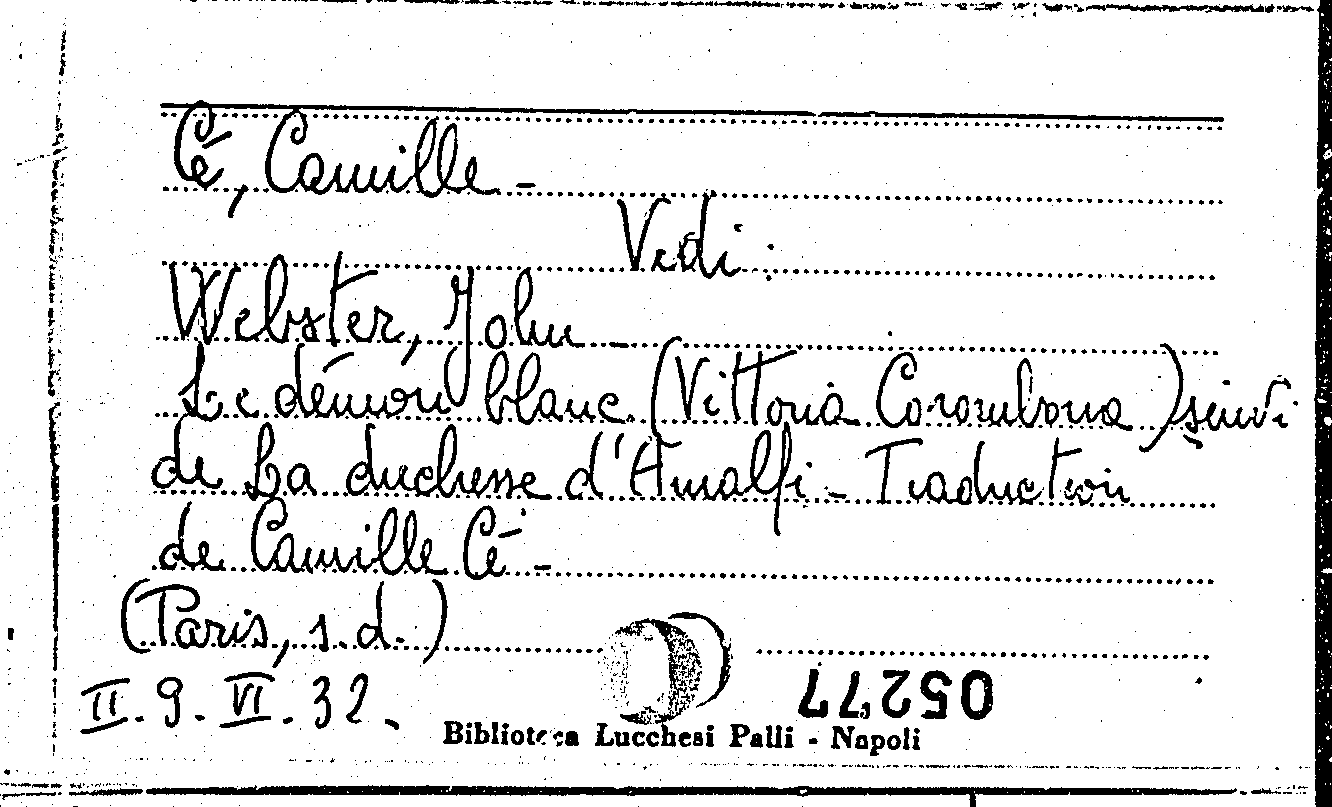 Cé, Camille -
Vedi:
Webster, John -
Le démon blanc (Vittoria Corombona) suivi
de La duchesse d'Amalfi - Traduction
de Camille Cé -
(Paris, s. d.)
II. 9. VI. 32.
05277
Biblioteca Lucchesi Palli - Napoli